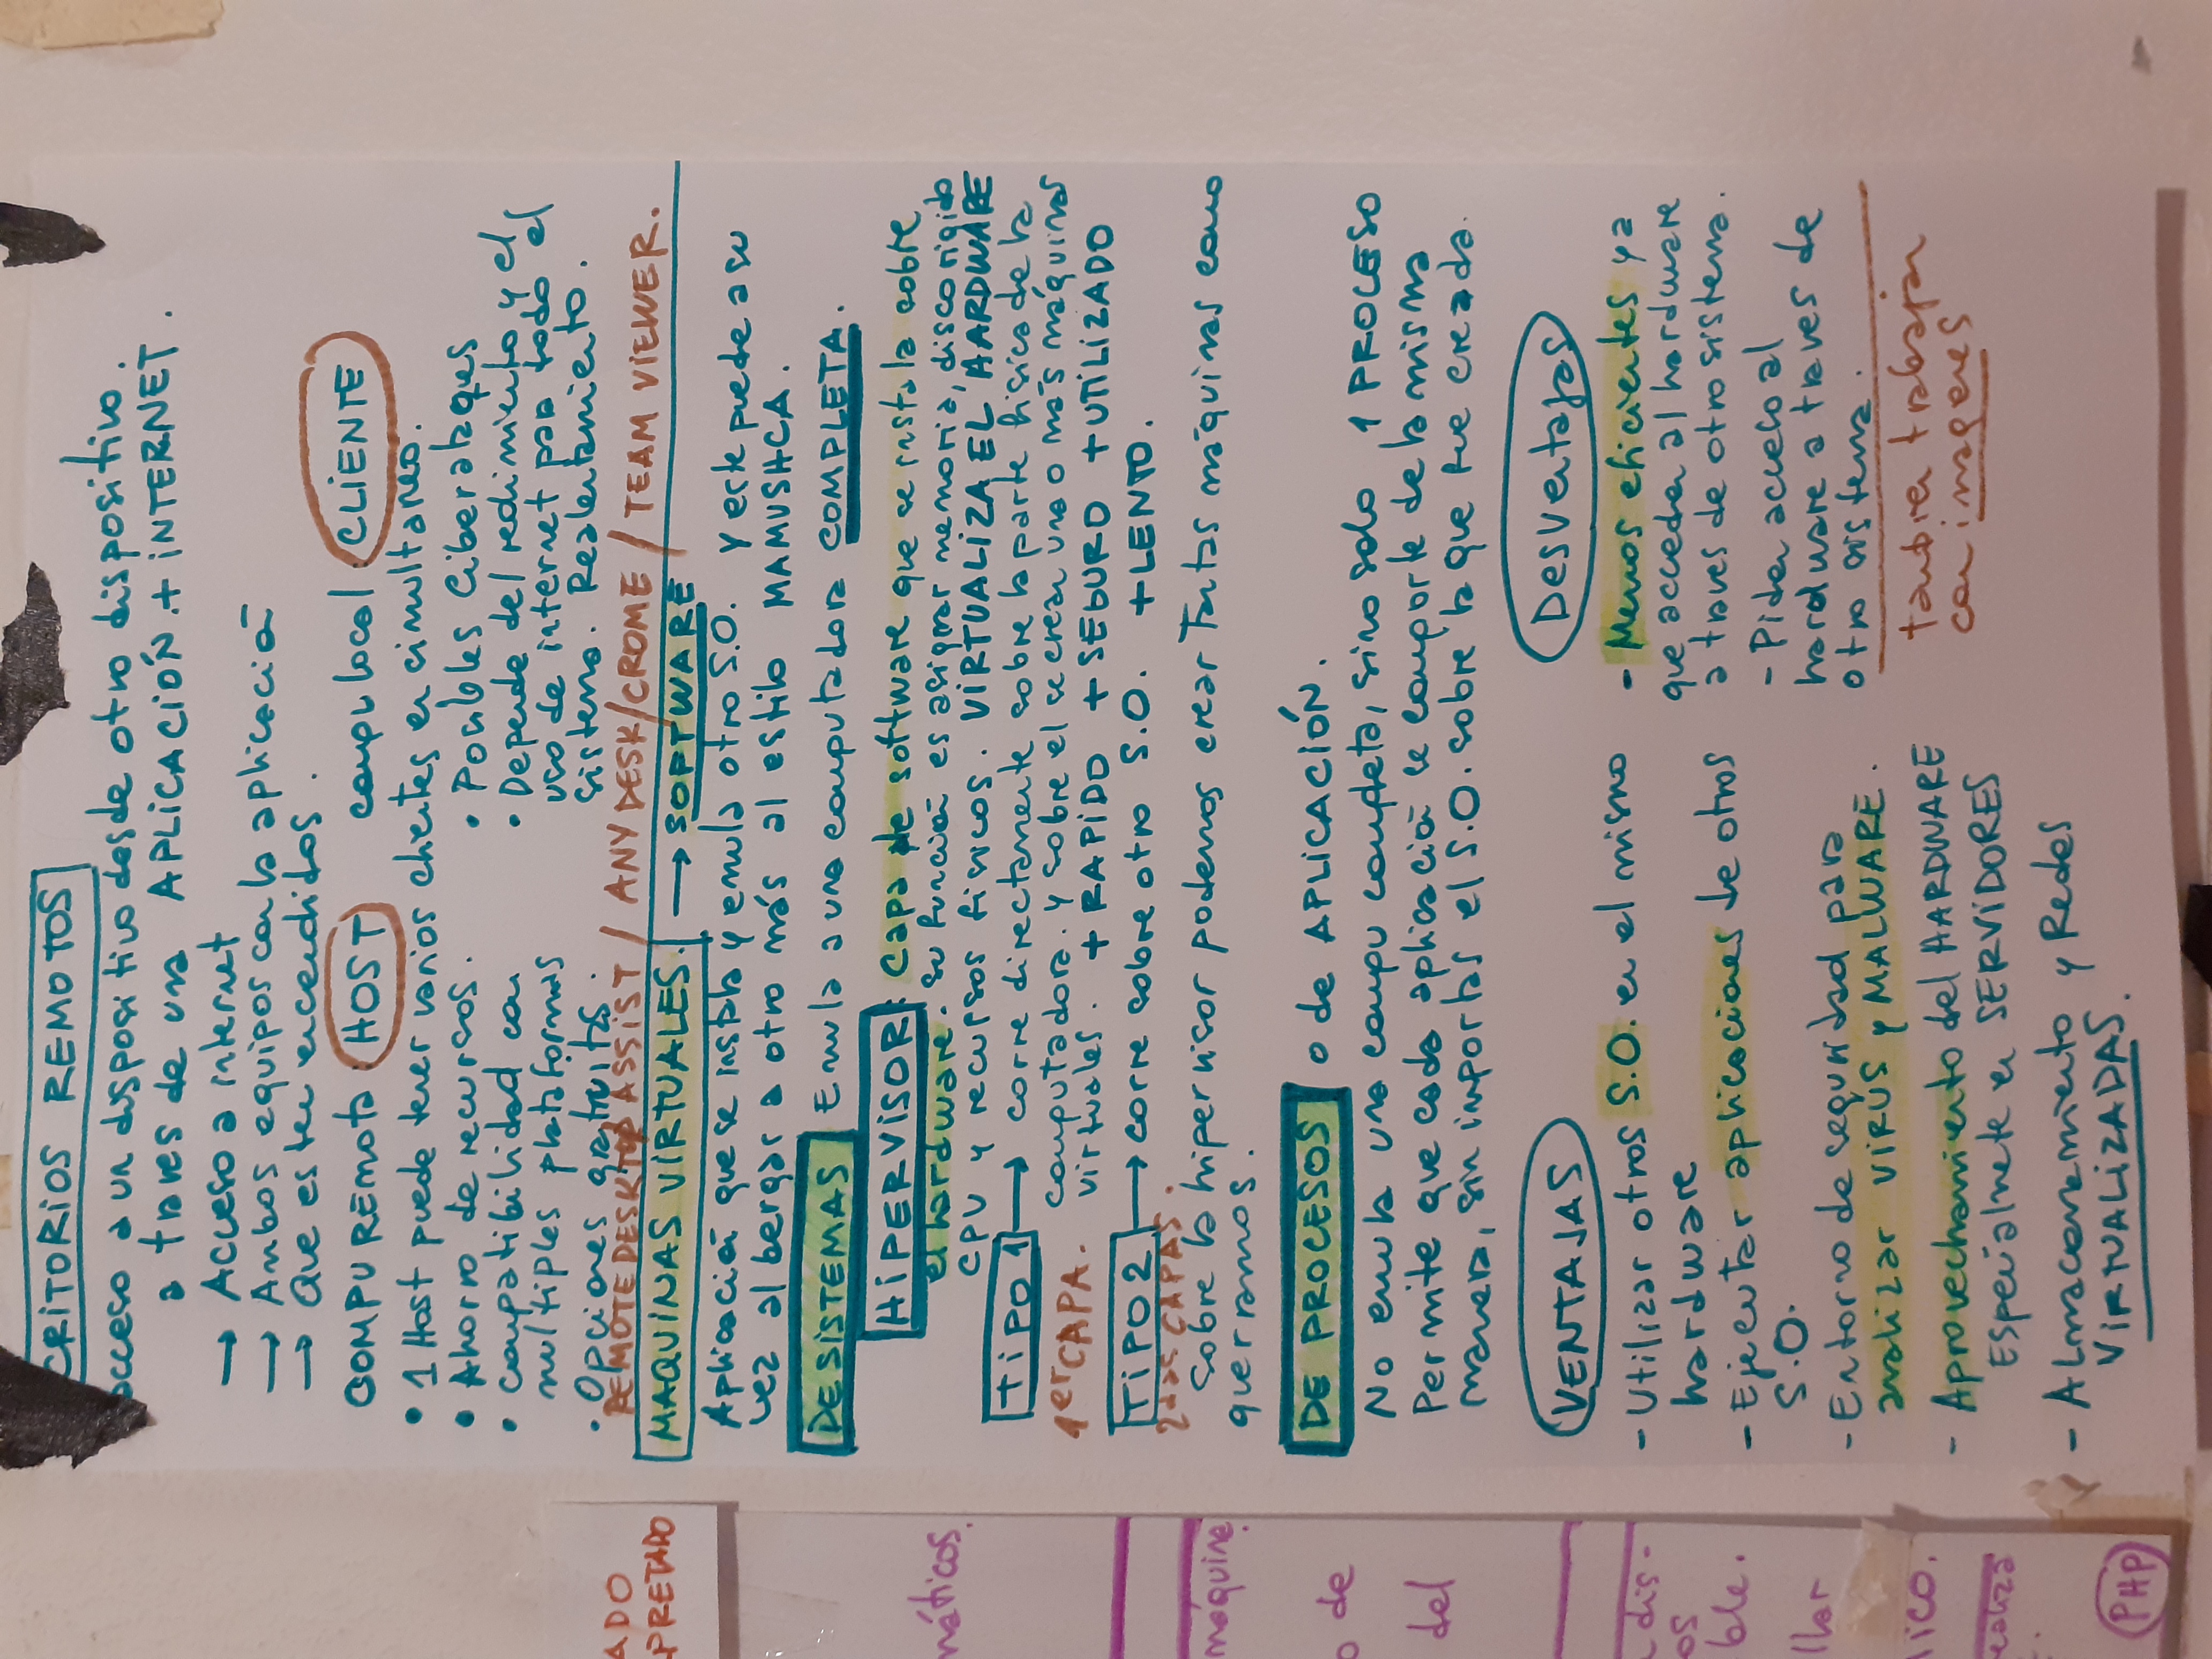 CRITORIOS REMOTOS
acceso a un dispositivo desde otro dispositivo.
a traves de una APLICACIÓN + INTERNET.
→ Acceso a internet
→ Ambos equipos con la aplicación
→ Que esten encendidos.
COMPU REmota HOST compu local CLIENTE
• 1 Host puede tener varios clientes en simultaneo.
• Ahorro de recursos.
• compatibilidad con
multiples plataformas
• Opciones gratuitas.
• Posibles Ciberataques
• Depende del redimiento y el
uso de internet para todo el
sistema. Realentamiento.
REMOTE DESKTOP ASSIST / ANY DESK / CROME / TEAM VIEWER.
MAQUINAS VIRTUALES. → SOFTWARE
Aplicación que se instala y emula otro S.O. Y este puede a su
vez albergar a otro más al estilo MAMUSHCA.
DE SISTEMAS Emula a una computadora COMPLETA.
HIPERVISOR: Capa de software que se instala sobre
el hardware. Su función es asignar memoria, disco rigido
CPU y recursos fisicos. VIRTUALIZA EL HARDWARE
TIPO 1 → corre directamente sobre la parte fisica de la
1er CAPA. computadora. y sobre el se crean una o más máquinas
virtuales. + RAPIDO + SEGURO + UTILIZADO
TIPO 2 → corre sobre otro S.O. + LENTO.
2das CAPAS.
Sobre la hipervisor podemos crear Tantas máquinas como
querramos.
DE PROCESOS o de APLICACIÓN.
No emula una compu completa, sino solo 1 PROCESO
Permite que cada aplicación se comporte de la misma
manera, sin importas el S.O. sobre la que fue creada.
VENTAJAS
- Utilizar otros S.O. en el mismo
hardware
- Ejecutar aplicaciones de otros
S.O.
- Entorno de seguridad para
analizar VIRUS y MALWARE.
- Aprovechamiento del HARDWARE
Especialmete en SERVIDORES
- Almacenamiento y Redes
VIRTUALIZADAS.
Desventajas
- Menos eficientes ya
que acceden al hardware
a traves de otro sistema.
- Piden acceso al
hardware a traves de
otro sistema.
tambien trabajan
con imagenes
ADO
PRETADO
máticos.
máquina.
o de
del
dis-
os
ble.
llar
ico.
realiza
PHP